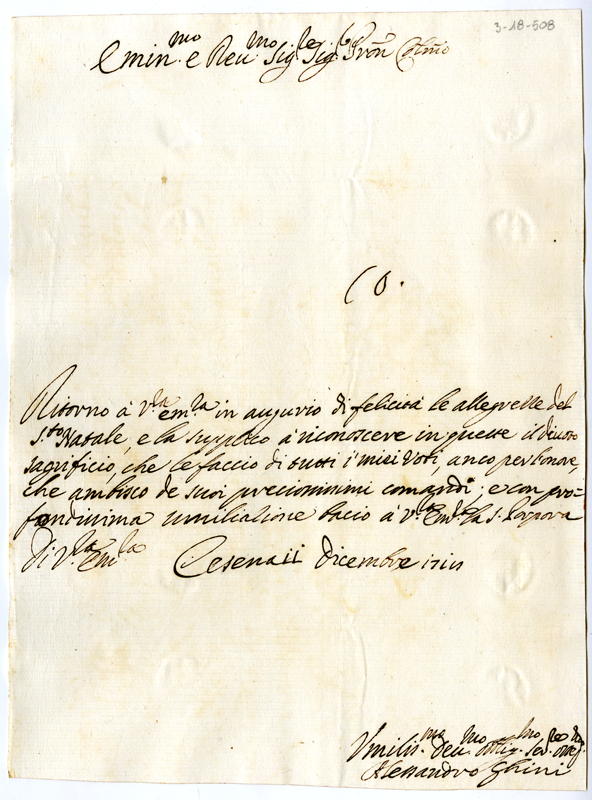 3-18-508
Emin.mo e Reu.mo Sig.re Sig.r Pron Colmo
Co.
Ritorno à V.ra Em.za in augurio di felicità le allegresse del
S.to Natale, e la supplico à riconoscere in queste il diuoto
sagrificio, che le faccio di tutti i miei voti, anco per l'onore,
che ambisco de suoi preciosissimi comandi; e con pro=
fondissima umiliatione bacio à V.ra Em.za la S. Porpora
Di V.ra Em.za Cesena 11 dicembre
Vmilis.mo Deu.mo Oblig.mo Ser.re
Alessandro Ghini